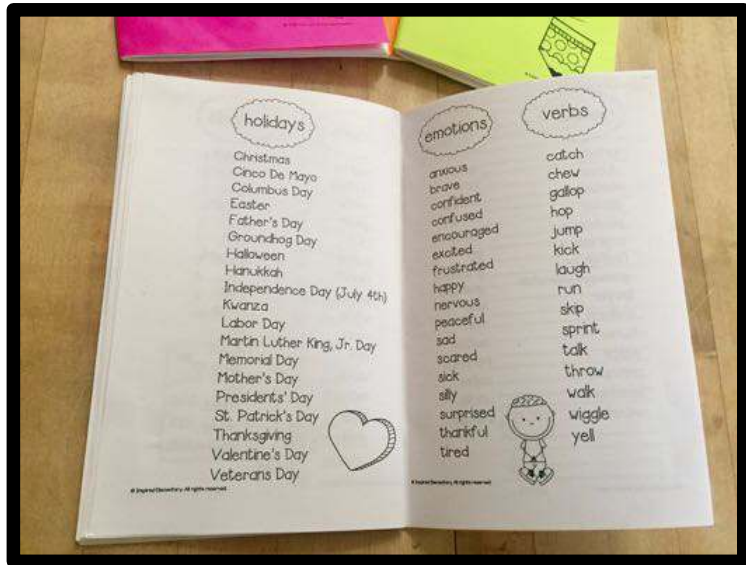 holidays
Christmas
Cinco De Mayo
Columbus Day
Easter
Father's Day
Groundhog Day
Halloween
Hanukkah
Independence Day (July 4th)
Kwanza
Labor Day
Martin Luther King, Jr. Day
Memorial Day
Mother's Day
Presidents' Day
St. Patrick's Day
Thanksgiving
Valentine's Day
Veterans Day
© Inspired Elementary. All rights reserved.
emotions
anxious
brave
confident
confused
encouraged
excited
frustrated
happy
nervous
peaceful
sad
scared
sick
silly
surprised
thankful
tired
© Inspired Elementary. All rights reserved.
verbs
catch
chew
gallop
hop
jump
kick
laugh
run
skip
sprint
talk
throw
walk
wiggle
yell